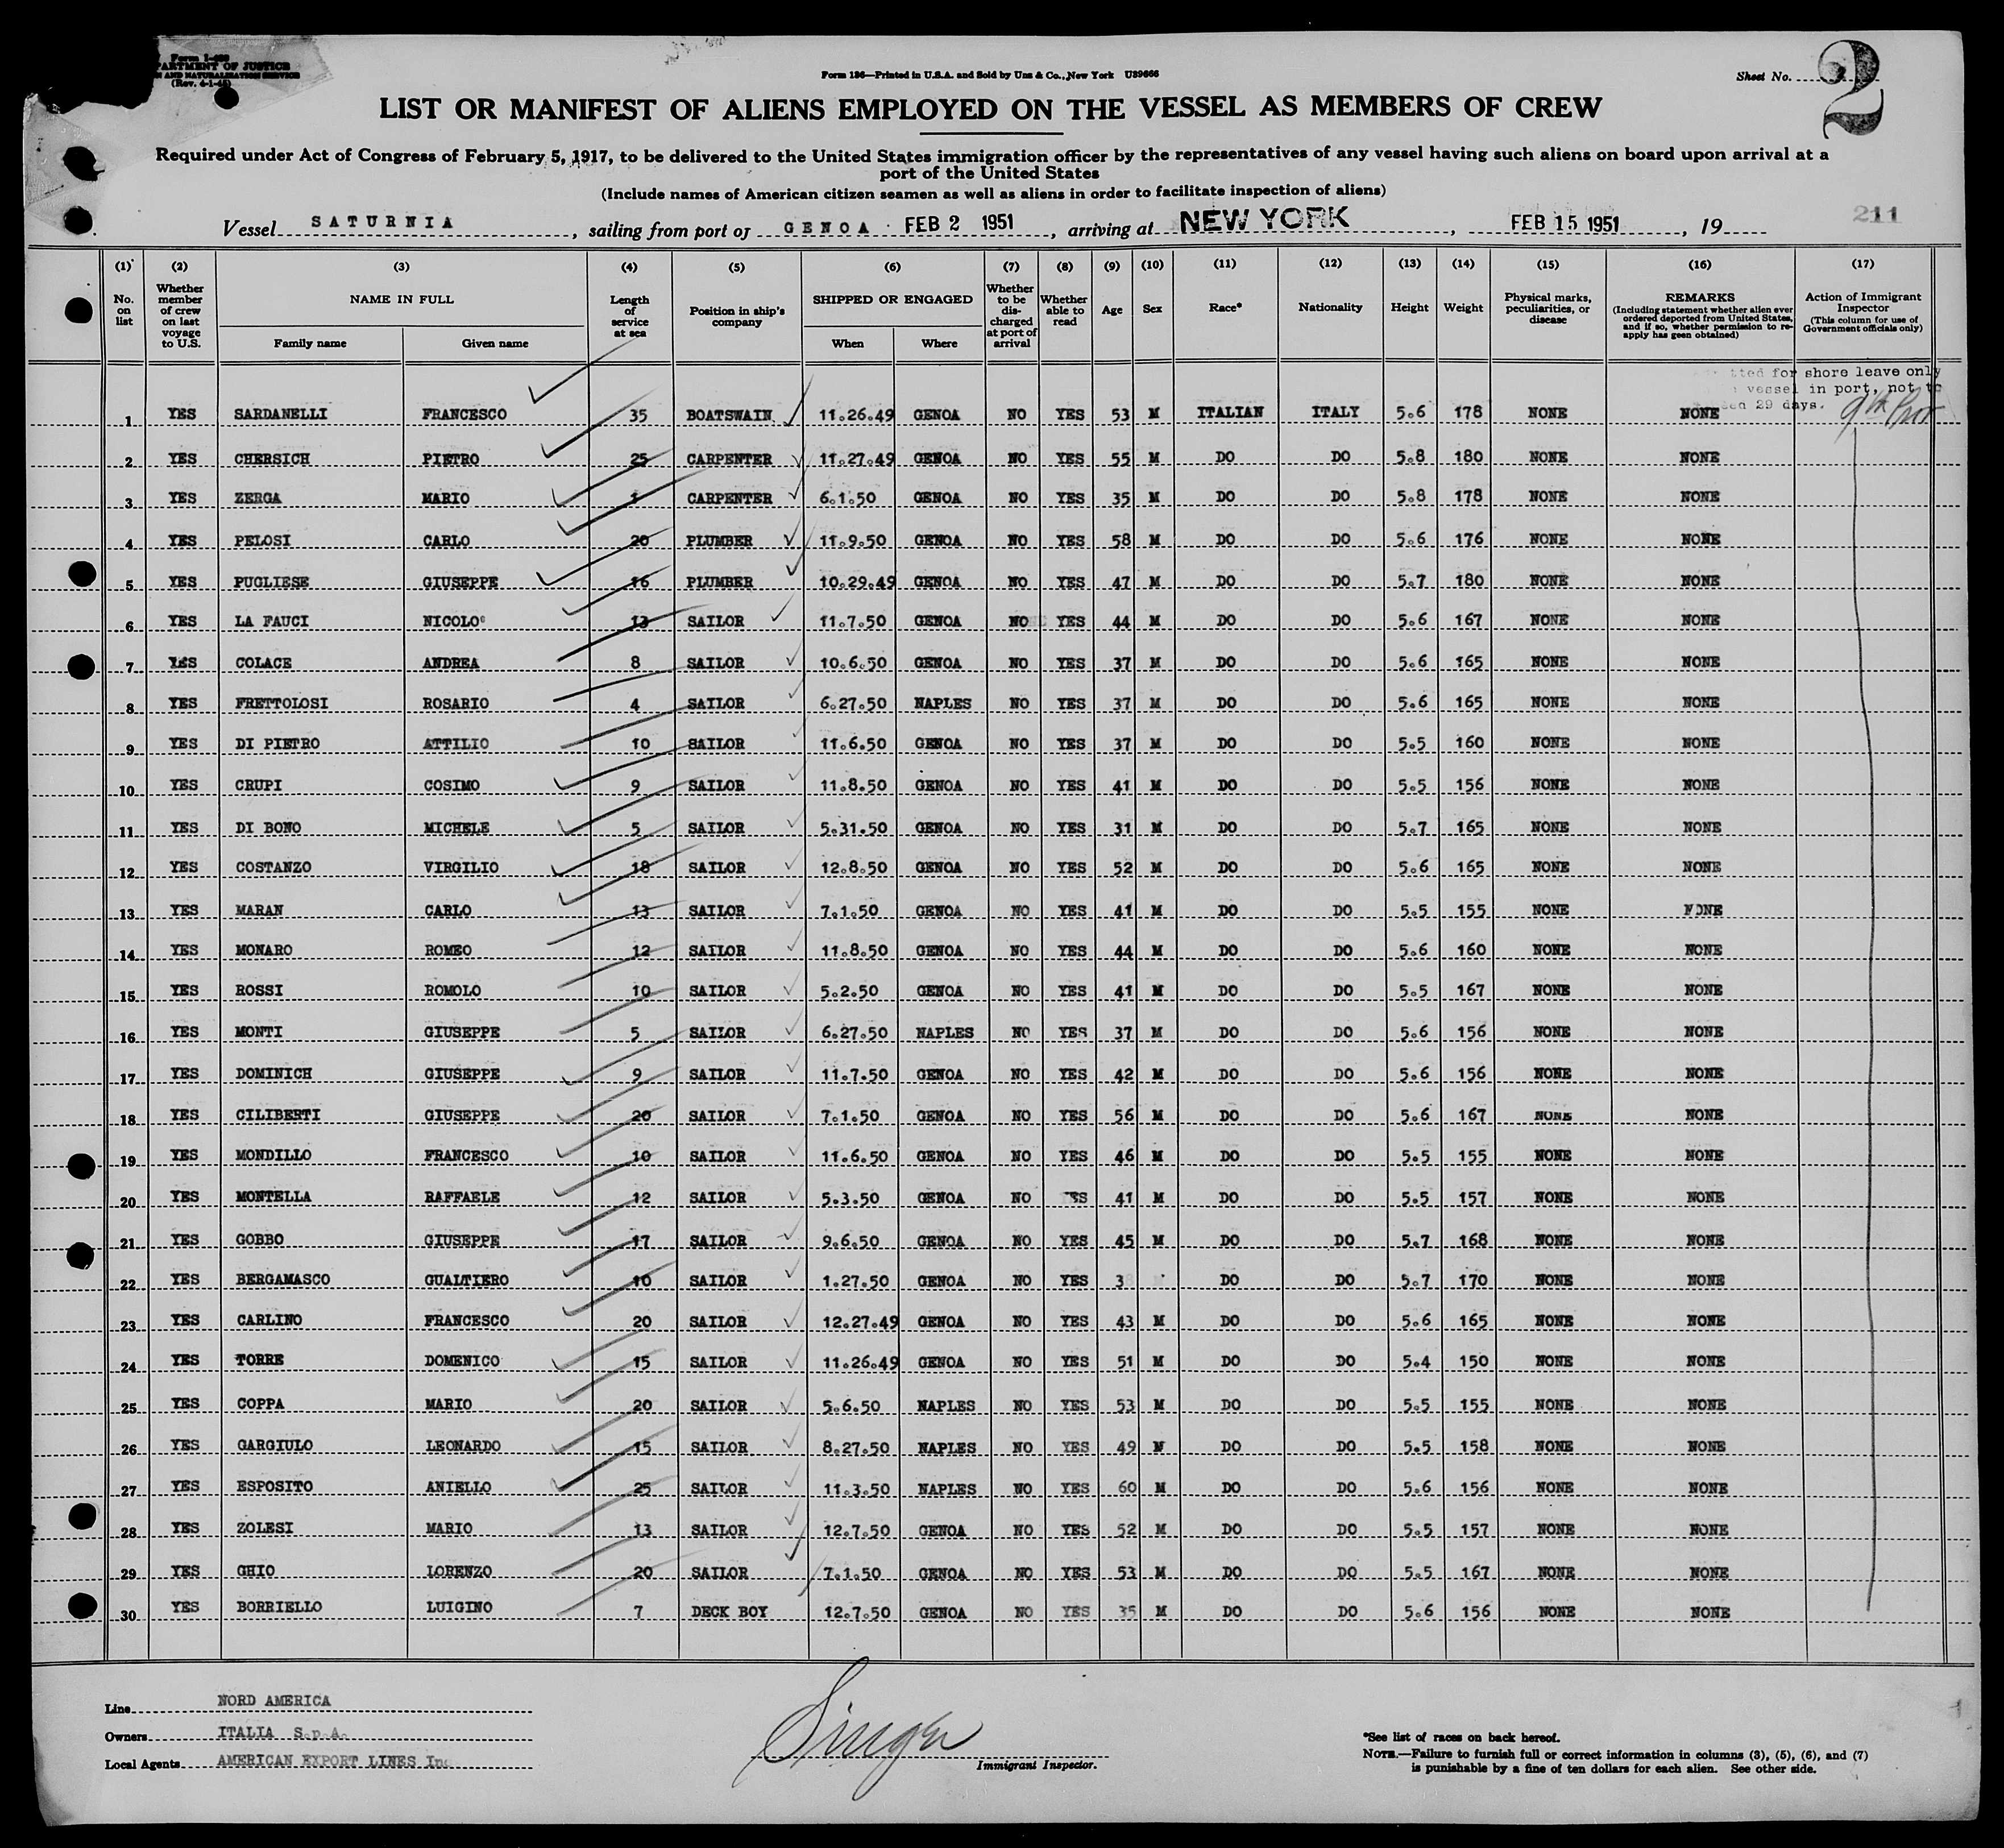 Form I-480
PARTMENT OF JUSTICE
N AND NATURALIZATION SERVICE
(Rev. 4-1-45)
Form 136—Printed in U.S.A. and Sold by Unz & Co., New York U39666
Sheet No. 2
LIST OR MANIFEST OF ALIENS EMPLOYED ON THE VESSEL AS MEMBERS OF CREW
Required under Act of Congress of February 5, 1917, to be delivered to the United States immigration officer by the representatives of any vessel having such aliens on board upon arrival at a
port of the United States
(Include names of American citizen seamen as well as aliens in order to facilitate inspection of aliens)
Vessel SATURNIA, sailing from port of GENOA FEB 2 1951, arriving at NEW YORK, FEB 15 1951, 19 211
(1) No. on list (2) Whether member of crew on last voyage to U.S. (3) NAME IN FULL Family name Given name (4) Length of service at sea (5) Position in ship's company (6) SHIPPED OR ENGAGED When Where (7) Whether to be discharged at port of arrival (8) Whether able to read (9) Age (10) Sex (11) Race* (12) Nationality (13) Height (14) Weight (15) Physical marks, peculiarities, or disease (16) REMARKS (Including statement whether alien ever ordered deported from United States, and if so, whether permission to re-apply has geen obtained) (17) Action of Immigrant Inspector (This column for use of Government officials only)
tted for shore leave only
vessel in port, not to
ed 29 days.
1 YES SARDANELLI FRANCESCO 35 BOATSWAIN 11.26.49 GENOA NO YES 53 M ITALIAN ITALY 5.6 178 NONE NONE
2 YES CHERSICH PIETRO 25 CARPENTER 11.27.49 GENOA NO YES 55 M DO DO 5.8 180 NONE NONE
3 YES ZERGA MARIO CARPENTER 6.1.50 GENOA NO YES 35 M DO DO 5.8 178 NONE NONE
4 YES PELOSI CARLO 20 PLUMBER 11.9.50 GENOA NO YES 58 M DO DO 5.6 176 NONE NONE
5 YES PUGLIESE GIUSEPPE 16 PLUMBER 10.29.49 GENOA NO YES 47 M DO DO 5.7 180 NONE NONE
6 YES LA FAUCI NICOLO' 13 SAILOR 11.7.50 GENOA NO YES 44 M DO DO 5.6 167 NONE NONE
7 YES COLACE ANDREA 8 SAILOR 10.6.50 GENOA NO YES 37 M DO DO 5.6 165 NONE NONE
8 YES FRETTOLOSI ROSARIO 4 SAILOR 6.27.50 NAPLES NO YES 37 M DO DO 5.6 165 NONE NONE
9 YES DI PIETRO ATTILIO 10 SAILOR 11.6.50 GENOA NO YES 37 M DO DO 5.5 160 NONE NONE
10 YES CRUPI COSIMO 9 SAILOR 11.8.50 GENOA NO YES 41 M DO DO 5.5 156 NONE NONE
11 YES DI BONO MICHELE 5 SAILOR 5.31.50 GENOA NO YES 31 M DO DO 5.7 165 NONE NONE
12 YES COSTANZO VIRGILIO 18 SAILOR 12.8.50 GENOA NO YES 52 M DO DO 5.6 165 NONE NONE
13 YES MARAN CARLO 13 SAILOR 7.1.50 GENOA NO YES 41 M DO DO 5.5 155 NONE NONE
14 YES MONARO ROMEO 12 SAILOR 11.8.50 GENOA NO YES 44 M DO DO 5.6 160 NONE NONE
15 YES ROSSI ROMOLO 10 SAILOR 5.2.50 GENOA NO YES 41 M DO DO 5.5 167 NONE NONE
16 YES MONTI GIUSEPPE 5 SAILOR 6.27.50 NAPLES NO YES 37 M DO DO 5.6 156 NONE NONE
17 YES DOMINICH GIUSEPPE 9 SAILOR 11.7.50 GENOA NO YES 42 M DO DO 5.6 156 NONE NONE
18 YES CILIBERTI GIUSEPPE 20 SAILOR 7.1.50 GENOA NO YES 56 M DO DO 5.6 167 NONE NONE
19 YES MONDILLO FRANCESCO 10 SAILOR 11.6.50 GENOA NO YES 46 M DO DO 5.5 155 NONE NONE
20 YES MONTELLA RAFFAELE 12 SAILOR 5.3.50 GENOA NO YES 41 M DO DO 5.5 157 NONE NONE
21 YES GOBBO GIUSEPPE 17 SAILOR 9.6.50 GENOA NO YES 45 M DO DO 5.7 168 NONE NONE
22 YES BERGAMASCO GUALTIERO 10 SAILOR 1.27.50 GENOA NO YES DO DO 5.7 170 NONE NONE
23 YES CARLINO FRANCESCO 20 SAILOR 12.27.49 GENOA NO YES 43 M DO DO 5.6 165 NONE NONE
24 YES TORRE DOMENICO 15 SAILOR 11.26.49 GENOA NO YES 51 M DO DO 5.4 150 NONE NONE
25 YES COPPA MARIO 20 SAILOR 5.6.50 NAPLES NO YES 53 M DO DO 5.5 155 NONE NONE
26 YES GARGIULO LEONARDO 15 SAILOR 8.27.50 NAPLES NO YES 49 M DO DO 5.5 158 NONE NONE
27 YES ESPOSITO ANIELLO 25 SAILOR 11.3.50 NAPLES NO YES 60 M DO DO 5.6 156 NONE NONE
28 YES ZOLESI MARIO 13 SAILOR 12.7.50 GENOA NO YES 52 M DO DO 5.5 157 NONE NONE
29 YES GHIO LORENZO 20 SAILOR 7.1.50 GENOA NO YES 53 M DO DO 5.5 167 NONE NONE
30 YES BORRIELLO LUIGINO 7 DECK BOY 12.7.50 GENOA NO YES 35 M DO DO 5.6 156 NONE NONE
Line NORD AMERICA
Owners ITALIA S.p.A.
Local Agents AMERICAN EXPORT LINES Inc
Singer
Immigrant Inspector.
*See list of races on back hereof.
NOTE.—Failure to furnish full or correct information in columns (3), (5), (6), and (7)
is punishable by a fine of ten dollars for each alien. See other side.